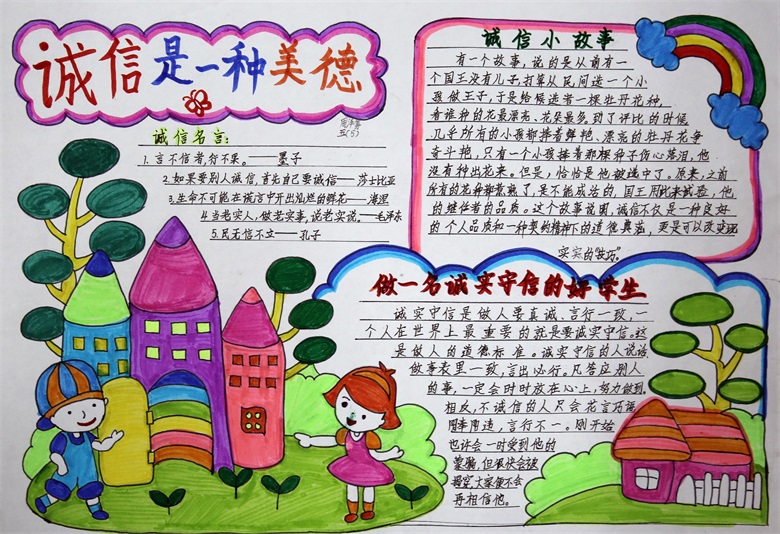 诚信是一种美德
五(5)
诚信名言:
1.言不信者,行不果。——墨子
2.如果要别人诚信,首先自己要诚信——莎士比亚
3.生命不可能在谎言中开出灿烂的鲜花——海涅
4.当老实人,做老实事,说老实说,——毛泽东
5.民无信不立——孔子
诚信小故事
有一个故事,说的是从前有一
个国王没有儿子,打算从民间选一个小
孩做王子,于是给候选者一棵牡丹花种,
看谁种的花最漂亮、花朵最多,到了评比的时候,
几乎所有的小孩都捧着鲜艳、漂亮的牡丹花争
奋斗艳,只有一个小孩捧着那棵种子伤心落泪,他
没有种出花来。但是,恰恰是他被选中了。原来,之前
所有的花种都煮熟了,是不能成活的,国王用此来试验,他
的继任者的品质。这个故事说明,诚信不仅是一种良好
的个人品质和一种契约精神下的道德典范,更是可以改变
实实的技巧。
做一名诚实守信的好学生
诚实守信是做人要真诚,言行一致,一
个人在世界上最重要的就是要诚实守信。这
是做人的道德标准。诚实守信的人说话,
做事表里一致,言出必行。凡答应别人
的事,一定会时时放在心上,努力做到。
相反,不诚信的人只会花言巧语,
言行不一。刚开始
也许会一时受到他的
蒙骗,但很快会被
揭穿,大家便不会
再相信他。